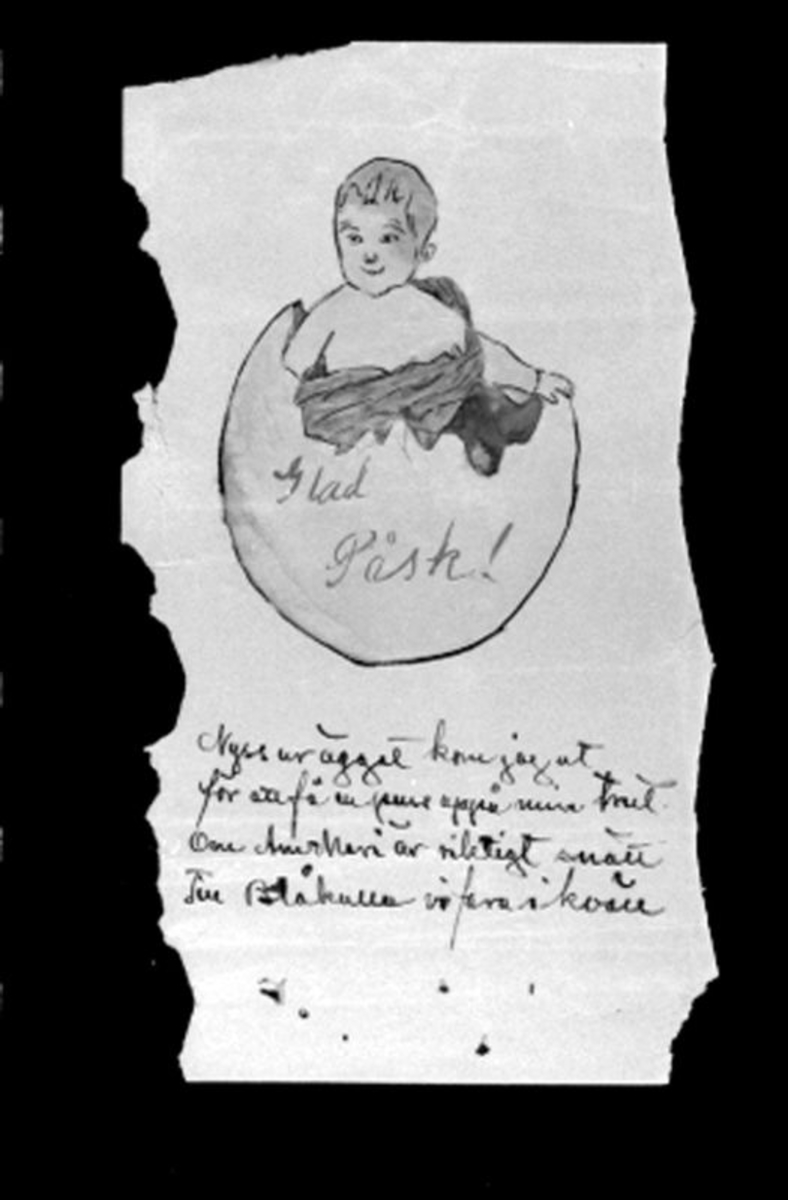 Glad
Påsk!
Nyss ur ägget kom jag ut
för att få en puss uppå min trut.
Om är riktigt snäll
Till Blåkulla vi fara i kväll